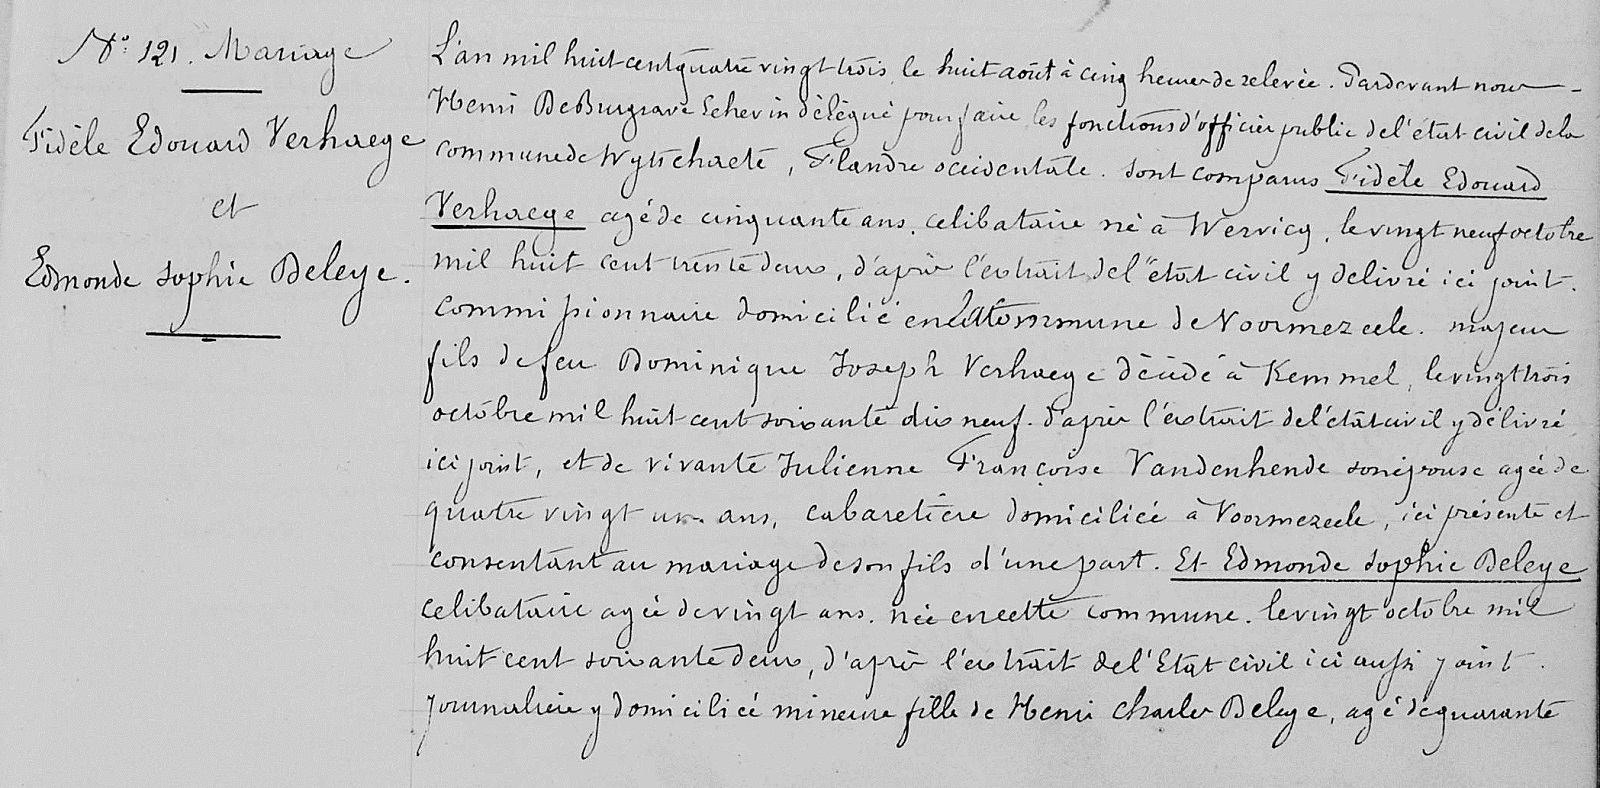 N° 121. Mariage
Fidèle Edouard Verhaege
et
Edmonde Sophie Deleye.
L'an mil huit cent quatre vingt trois, le huit août à cinq heures de relevée. Pardevant nous
Henri DeBurgrave Echevin délégué pour faire les fonctions d'officier public de l'état civil de la
commune de Wytschaete, Flandre occidentale. sont comparus Fidèle Edouard
Verhaege agé de cinquante ans. celibataire né à Wervicq, le vingt neuf octobre
mil huit cent trente deux, d'après l'extrait de l'état civil y delivré ici joint.
commissionnaire domicilié en la commune de Voormezeele. majeur
fils de feu Dominique Joseph Verhaege décédé à Kemmel, le vingt trois
octobre mil huit cent soixante dix neuf. d'après l'extrait de l'état civil y délivré
ici joint, et de vivante Julienne Françoise Vandenhende son épouse agée de
quatre vingt un ans, cabaretière domiciliée à Voormezeele, ici présente et
consentant au mariage de son fils d'une part. Et Edmonde Sophie Deleye
celibataire agée de vingt ans. née en cette commune. le vingt octobre mil
huit cent soixante deux, d'après l'extrait de l'Etat civil ici aussi joint.
journalière y domiciliée mineure fille de Henri Charles Deleye, agé de quarante